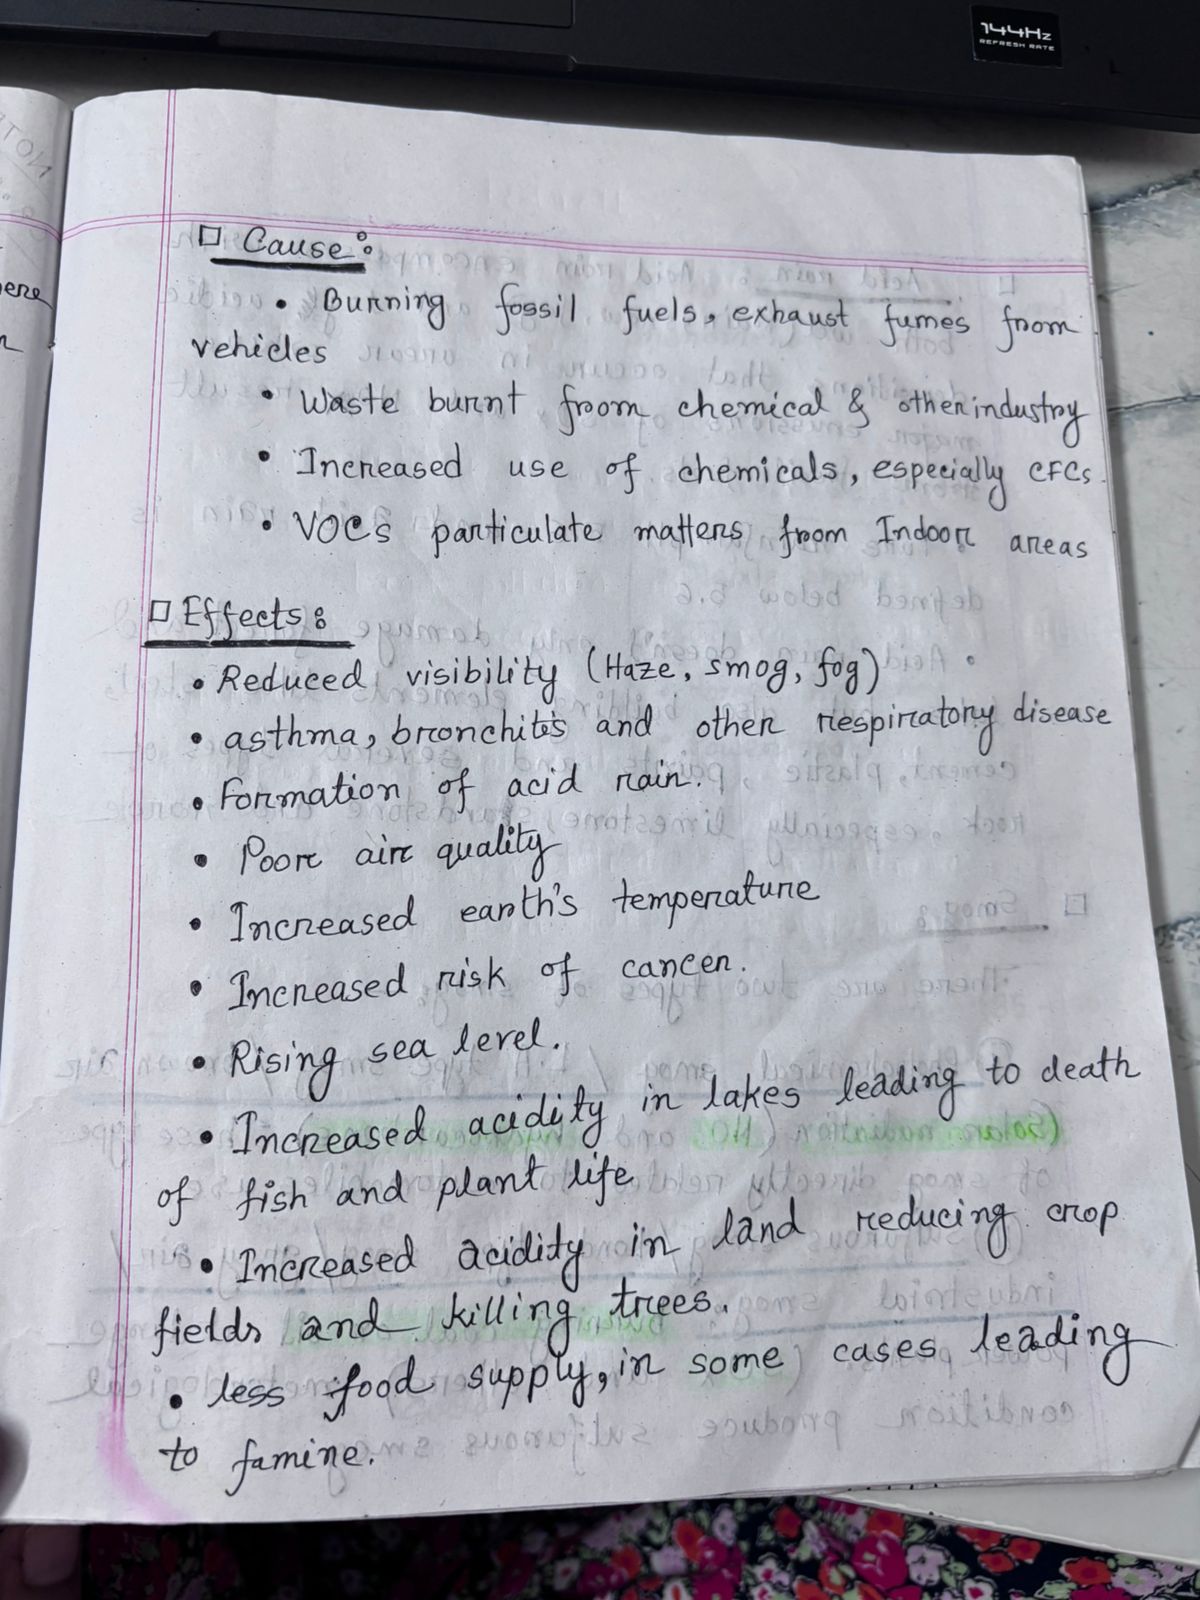 144Hz
REFRESH RATE
ere
□ Cause:
• Burning fossil fuels, exhaust fumes from
vehicles
• Waste burnt from chemical & other industry
• Increased use of chemicals, especially CFCs
• VOCs particulate matters from Indoor areas
□ Effects:
• Reduced visibility (Haze, smog, fog)
• asthma, bronchitis and other respiratory disease
• Formation of acid rain.
• Poor air quality
• Increased earth's temperature
• Increased risk of cancer.
• Rising sea level.
• Increased acidity in lakes leading to death
of fish and plant life
• Increased acidity in land reducing crop
fields and killing trees.
• less food supply, in some cases leading
to famine.